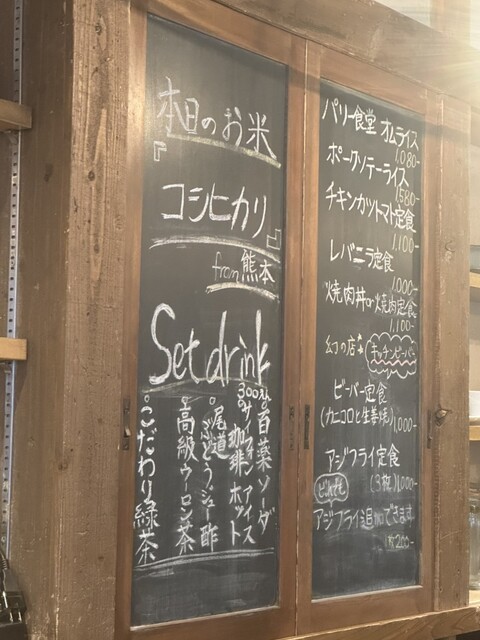 本日のお米
『コシヒカリ』
from 熊本
Set drink
300yen
百薬ソーダ
サイフォン珈琲 アイス ホット
尾道ぶどうジュー酢
高級ウーロン茶
こだわり緑茶
パリー食堂 オムライス
1,080-
ポークソテーライス
1,580-
チキンカツトマト定食
1,100-
レバニラ定食
1,000-
焼肉丼or焼肉定食
1,100-
幻の店
キッチンビーバー
ビーバー定食
(カニコロと生姜焼) 1,000-
アジフライ定食
(3枚) 1,000-
アジフライ追加できます
1枚200-